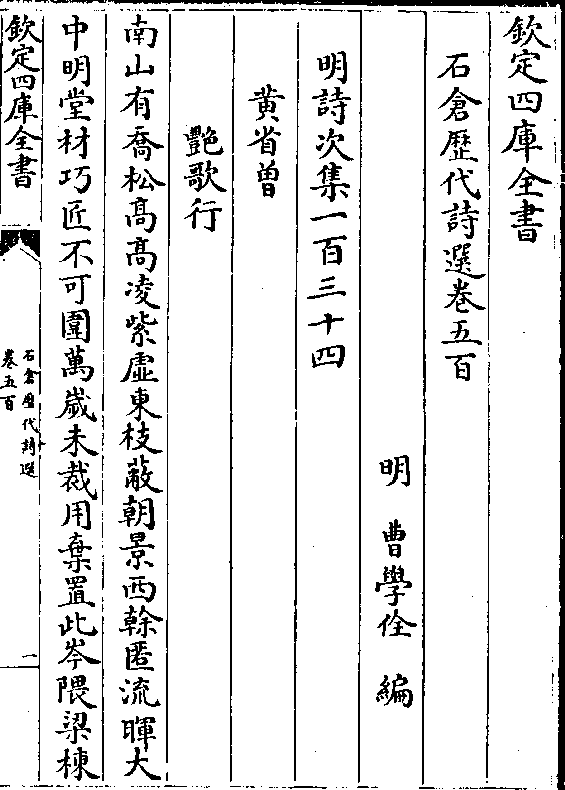 欽定四庫全書
石倉歴代詩選卷五百
明　曹學佺　編
明詩次集一百三十四
黄省曾
艷歌行
南山有喬松髙髙凌紫虚東枝蔽朝景西榦匿流暉大
中明堂材巧匠不可圍萬嵗未裁用棄置此岑隈梁棟
欽定四庫全書
石倉歴代詩選
卷五百
一